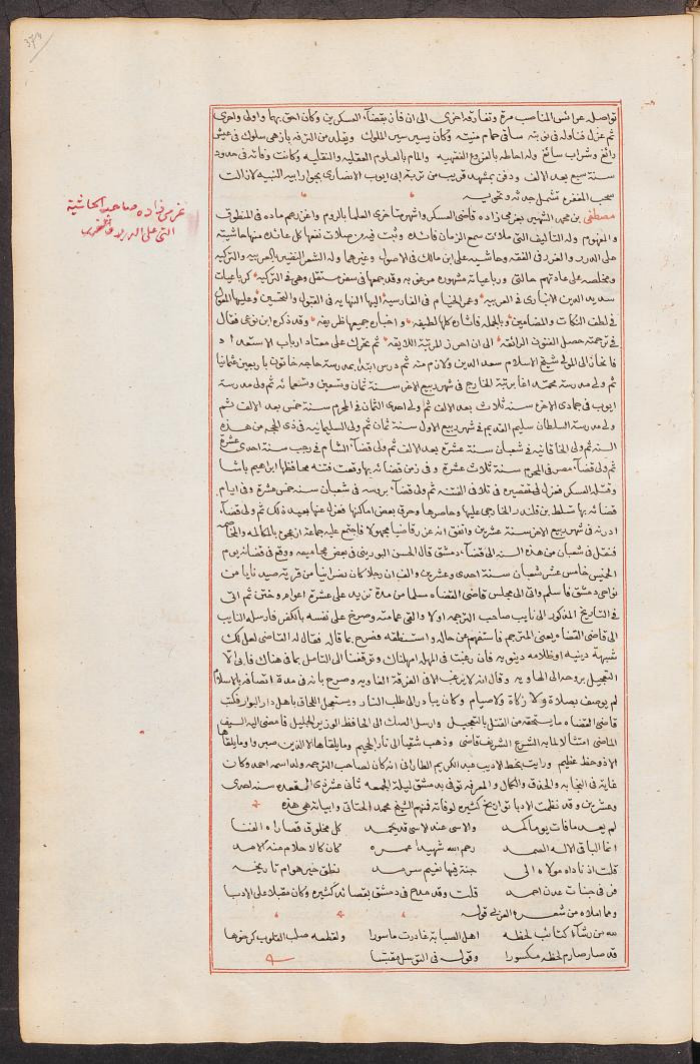 تواصله عرائس المناصب مرة وتفارقه اخرى الى ان فاز بقضاء العسكرين وكان احق بهما واولى واحرى
ثم عزل فناوله فى نوبته ساقى حمام منيته وكان يسير سير الملوك ويقلد من الترفه بازهى سلوك فى عيش
رائع وشراب سائغ وله احاطه بالفروع الفقهيه والمام بالعلوم العقليه والنقليه وكانت وفاته فى حدود
سنة سبع بعد الالف ودفن بمشهد قريب من تربة ابى ايوب الانصارى بجوار ابيه النبيه لا زالت
سحب المغفرة تشمل جدثه وتحويه
مصطفى بن محمد الشهير بعزمى زاده قاضى العسكر واشهر متاخرى العلما بالروم واغزرهم ماده فى المنطوق
والمفهوم وله التاليف التى ملات سمع الزمان فائدة وثبت فيه من صلات نفعها كل عائدة منها حاشيته
على الدرر والغرر فى الفقه وحاشيه على ابن مالك فى الاصول وغيرهما وله الشعر النضير بالعربيه والتركيه
ومخلصه على عادتهم حالتى ورباعياته مشهوره مرغوبه وقد جمعها فى سفر مستقل وهى فى التركيه كرباعيات
سديد الدين الانبارى فى العربيه وعمر الخيام فى الفارسية اليها النهايه فى القبول والتحسين وعليها المعول
فى لطف النكات والمضامين وبالجمله فآثاره كلها لطيفه واخباره جميعها ظريفه وقد ذكره ابن نوعى فقال
فى ترجمته حصل الفنون الرائقه الى ان احرز المرتبة اللايقه ثم تحرك على معتاد ارباب الاستعداد
فانحاز الى المولى شيخ الاسلام سعد الدين ولازم منه ثم درس ابتداء بمدرسة حاجه خاتون باربعين عثمانيا
ثم ولى مدرسة محمد اغا برتبة الخارج فى شهر ربيع الاخر سنة ثمان وتسعين وتسعمائه ثم ولى مدرسة
ايوب فى جمادى الاخره سنة ثلاث بعد الالف ثم ولى احدى الثمان فى المحرم سنة خمس بعد الالف ثم
ولى مدرسة السلطان سليم القديم فى شهر ربيع الاول سنة ثمان ثم ولى السليمانيه فى ذى الحجه من هذه
السنه ثم ولى الخاقانيه فى شعبان سنة عشرة بعد الالف ثم ولى قضاء الشام فى رجب سنة احدى عشرة
ثم ولى قضاء مصر فى المحرم سنة ثلاث عشرة وفى زمن قضائه بها وقعت فتنة محافظها ابراهيم باشا
وقتله العسكر فعزل لتقصيره فى تلافى الفتنه ثم ولى قضاء بروسه فى شعبان سنة خمس عشرة وفى ايام
قضائه بها تسلط بن قلندر الخارجى عليها وحاصرها وحرق بعض اماكنها فعزل عنها بعيد ذلك ثم ولى قضاء
ادرنه فى شهر ربيع الاخر سنة عشرين واتفق انه عزر قاضيا مجهولا فاجتمع عليه جماعة ازعجوه بالمكالمه والمخاصمه
فنقل فى شعبان من هذه السنه الى قضاء دمشق قال الحسن البورينى فى بعض مجاميعه ووقع فى قضائه يوم
الخميس خامس عشر شعبان سنة احدى وعشرين والف ان رجلا كان نصرانيا من قرية صيدنايا من
نواحى دمشق فاسلم واتى الى مجلس قاضى القضاه سلما من مدة تزيد على عشرة اعوام وختن ثم اتى
فى التاريخ المذكور الى نايب صاحب الترجمه اولا والقى عمامته وصرخ على نفسه بالكفر فارسله النايب
الى قاضى القضاه يعنى المترجم فاستفهم عن حاله واستنطقه فصرح بما قاله فقال له القاضى اهل لك
شبهة دينيه او ظلامه دنيويه فان رغبت فى المهله امهلناك وتوقفنا الى التامل بما فى هناك فابى الا
التعجيل بروحه الى الهاويه وقال انه لا يرغب الا فى الفرقة الغاويه وصرح بانه فى مدة اتصافه بالاسلام
لم يوصف بصلاة ولا زكاة ولا صيام وكان يبادر الى طلب النار ويستعجل اللحاق باهل دار البوار فكتب
قاضى القضاه ما يستحقه من القتل بالتعجيل وارسل الصك الى الحافظ الوزير الجليل فامضى اليه السيف
الماضى امتثالا لما به الشرع الشريف قاضى وذهب شقيا الى نار الجحيم وما يلقاها الا الذين صبروا وما يلقاها
الا ذو حظ عظيم ورايت بخط الاديب عبد الكريم الطارانى انه كان لصاحب الترجمه ولد اسمه احمد وكان
غاية فى النجابه والحذق والكمال والمعرفه توفى بدمشق ليلة الجمعه ثانى عشر ذى القعده سنه احدى
وعشرين وقد نظمت الادبا تواريخ كثيره لوفاته فمنهم الشيخ محمد الحتاتى وابياته هى هذه
لم يعد ما فات يوما لمحد والاسى عند الاسى قد يحمد كل مخلوق قصاراه الفنا
انما الباقى الاله الصمد رحم الله شهيدا عمره كان كالاحلام منه الامد
قلت اذ ناداه مولاه الى جنة فيها نعيم سرمد نطق خير هو ام تاريخه
قر فى جنات عدن احمد قلت وقد مدح فى دمشق بقصائد كثيره وكان مقبلا على الادبا
ومما املاه من شعره العربى قوله
لله من رشاء كتائب لحظه اهل الصبابة غادرت ماسورا ولقلعه صلب القلوب كرهوها
قد صار صارم لحظه مكسورا وقوله فى التوسل مقتبسا
عزمى زاده صاحب الحاشية
التى على الدرر والغرر